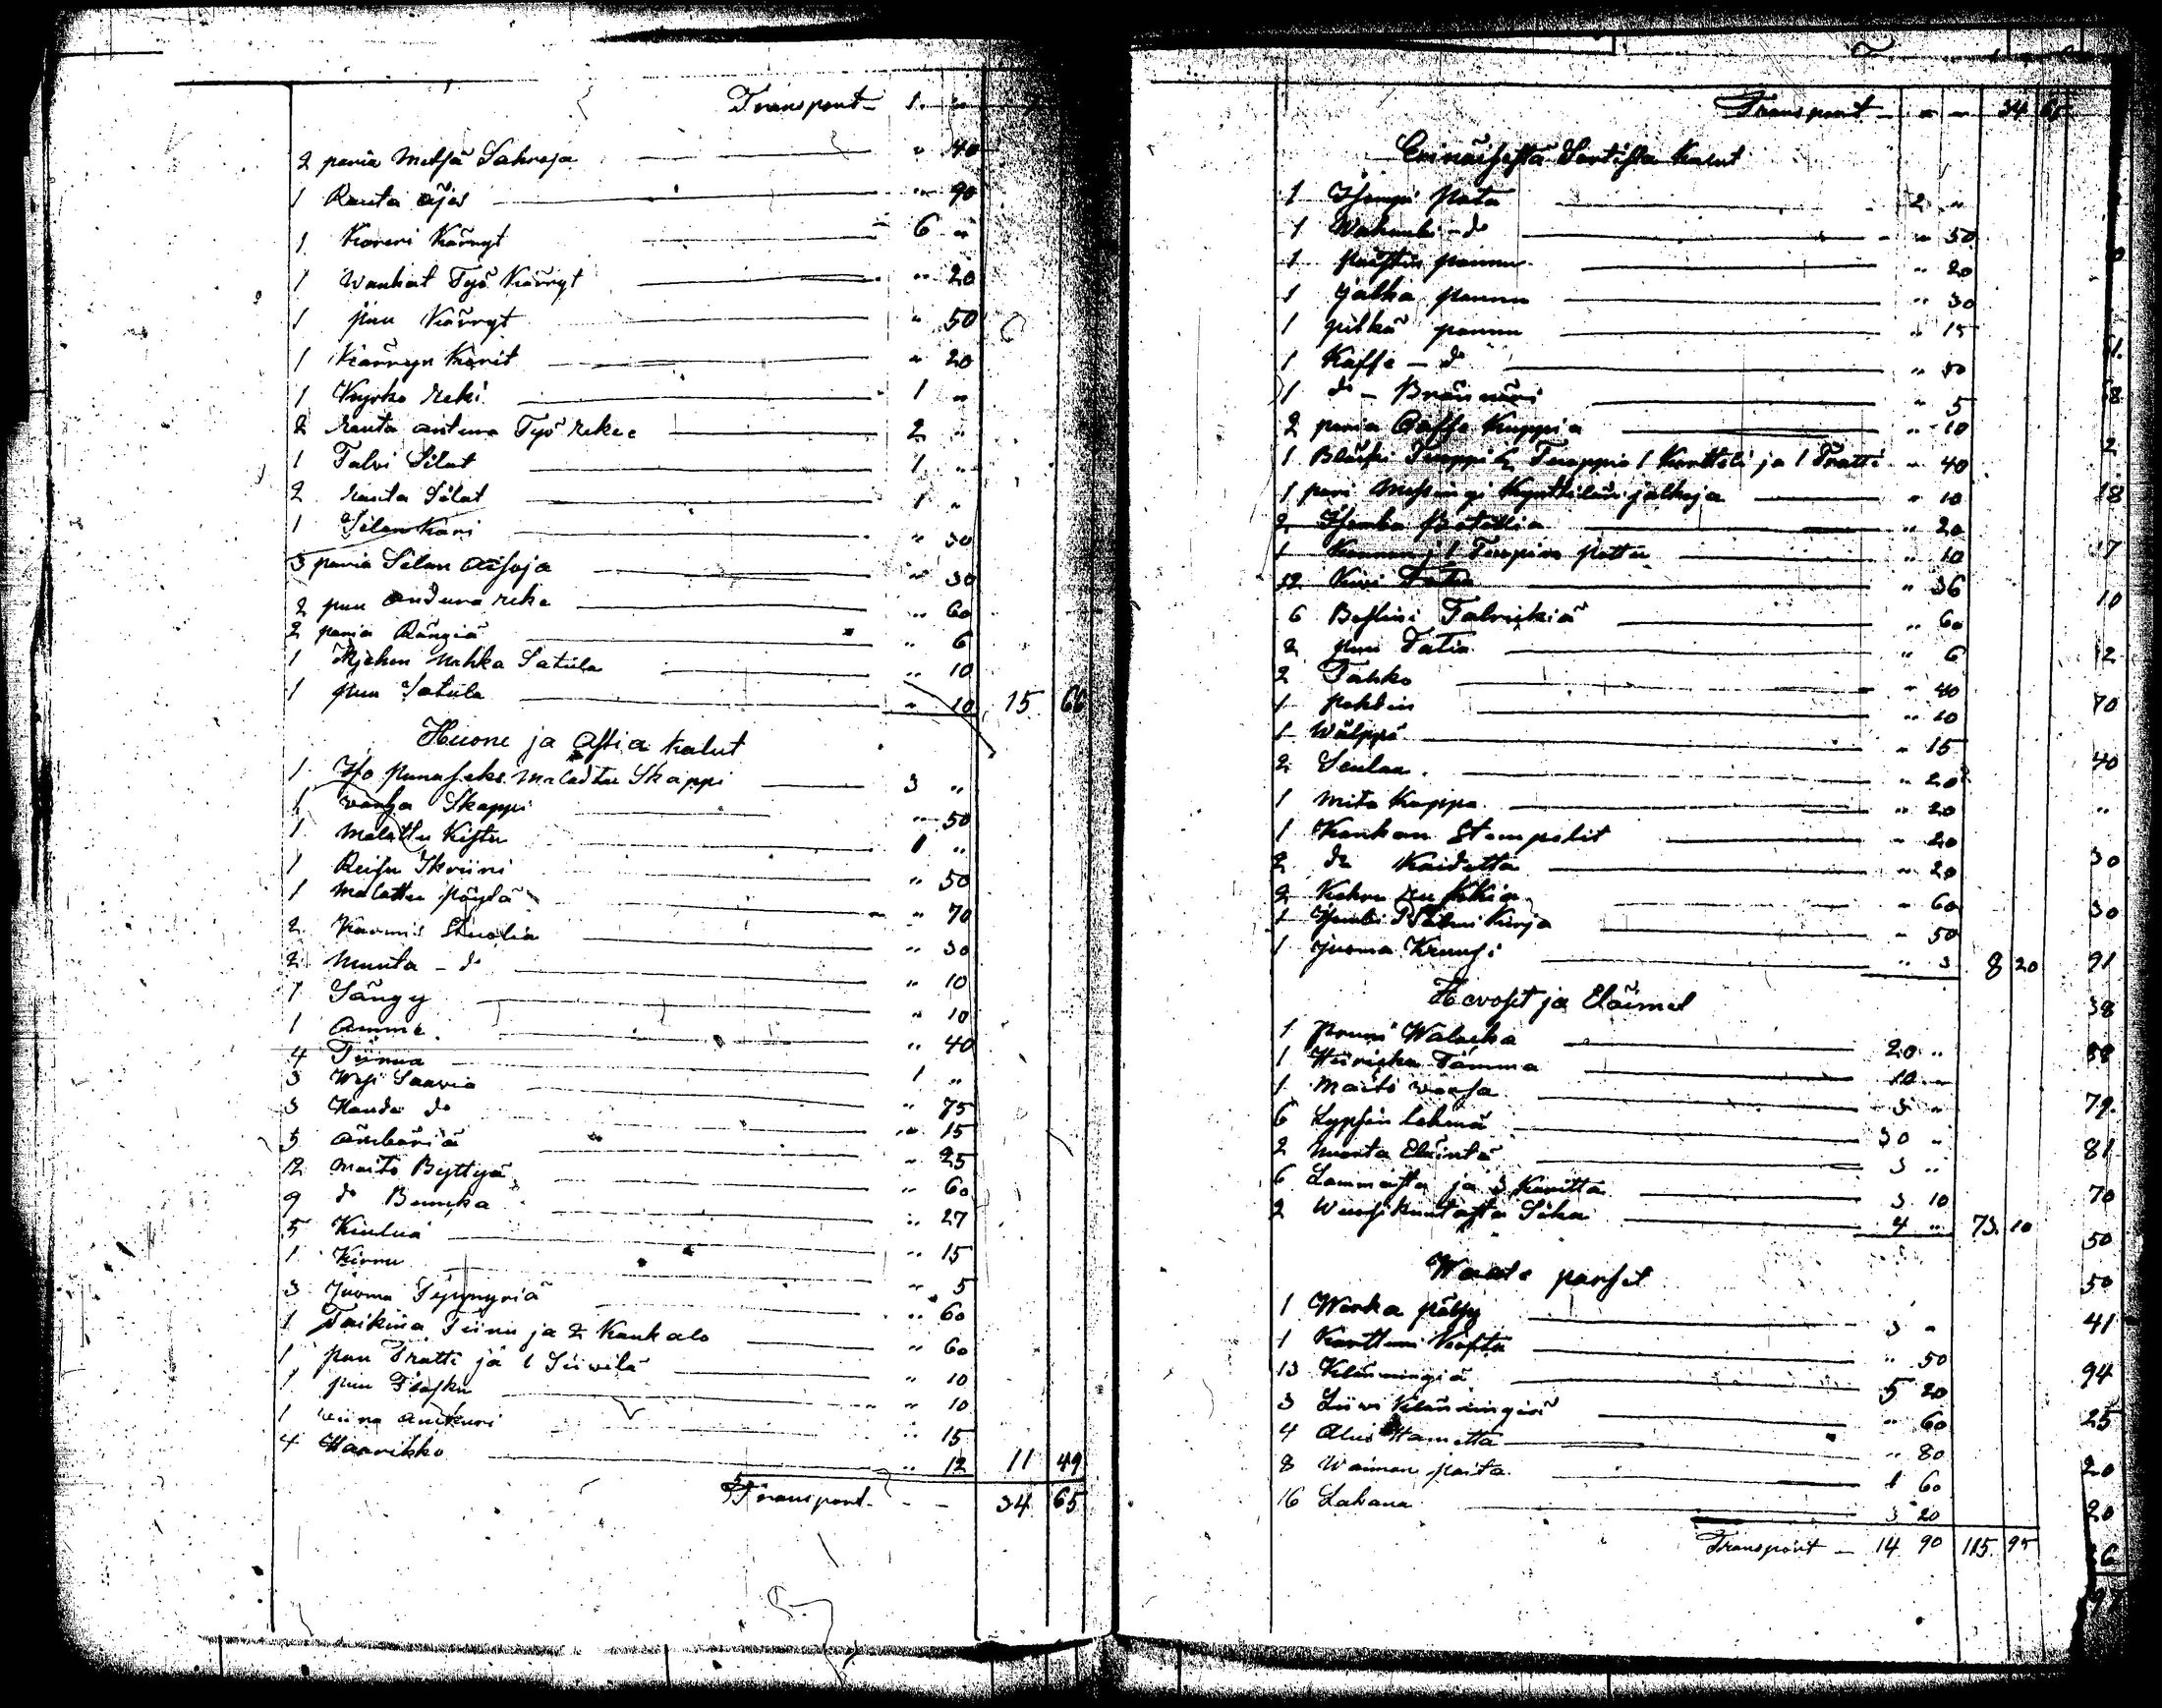 Transport 1 "
2 paria Metsä Sahroja " 40
1 Rauta äjes " 90
1 Kareri Kärryt 6 "
1 Wanhat Työ Kärryt " 20
1 puu Kärryt " 50
1 Kärryn Korit " 20
1 Kyrko Reki 1 "
2 Rauta antura Työ Rekee 2 "
1 Talvi Silat 1 "
2 Rauta Silat 1 "
1 Silan Kari " 30
3 paria Silan Aisoja " 30
2 puu Andura reke " 60
2 paria Rängiä " 6
1 nahka Satula " 10
1 puu Satula " 10 15 66
Huone ja Astia Kalut
1 Iso punaseks Maladtu Skappi 3 "
1 vanha Skappi " 50
1 Malattu Kistu 1 "
1 Reisu Skriini " 50
1 Malattu pöytä " 70
2 Karmis Stuolia " 30
2 Muuta do " 10
1 Sängy " 10
1 Amme " 40
4 Tiinua 1 "
3 Wesi Saavia " 75
3 Kanda do " 15
5 ämbäriä " 25
12 Maito Byttyä " 60
9 do Bunka " 27
5 Kiulua " 15
1 Kirnu " 5
3 Juoma Tynnyriä " 60
1 Taikina Tiinu ja 2 Kaukalo " 60
1 puu Tratti ja 1 Siivilä " 10
1 puu Flasku " 10
1 viina Ankkuri " 15
4 Haarikko " 12 11 49
Transport 34 65
Transport " " 34 65
Erinäisestä Sortista Kalut
1 Isompi Pata 2 "
1 Wähembi do " 50
1 paistin pannu " 20
1 Jalka pannu " 30
1 pitkä pannu " 15
1 Kaffe do " 50
1 do Brännäri " 5
2 paria Caffe Kuppia " 10
1 Bläkki Tuoppi 1/2 Tuoppia 1 Kortteli ja 1 Tratti " 40
1 pari Messingi Kynttilän jalkoja " 10
2 Isomba Botellia " 20
1 Kannun j 1 Tuopin pottu " 10
12 Kivi Fatia " 36
6 Boslini Talrikiä " 60
2 puu Fatia " 6
2 Tahko " 40
1 Pohdin " 10
1 Wälppä " 15
2 Seulaa " 20
1 Mita Kappa " 20
1 Kankan Stampelit " 20
2 do Kaidetta " 20
2 Kahvi " 60
1 Psalmi Kirja " 50
1 Juoma Kruusi " 3 8 20
Hevoset ja Eläimet
1 Pruni Walacka 20 "
1 Hiiricka Tamma 10 "
1 Maito varsa 3 "
6 Lypsin Lehmä 30 "
2 Nuorta Eläintä 3 "
6 Lammasta ja 3 Karitta 3 10
2 Wuosikuntasta Sika 4 " 73 10
Waate parset
1 Werka pälsy 3 "
1 Karttuni Kofta " 50
13 Klänningiä 5 20
3 Liivi Klänningiä " 60
4 Alus Hametta " 80
8 Waimon paita 1 60
16 Lakana 3 20
Transport 14 90 115 95
0
61
58
2
18
17
10
12
70
40
"
30
30
91
38
88
79
81
70
50
50
41
94
25
20
20
6
97